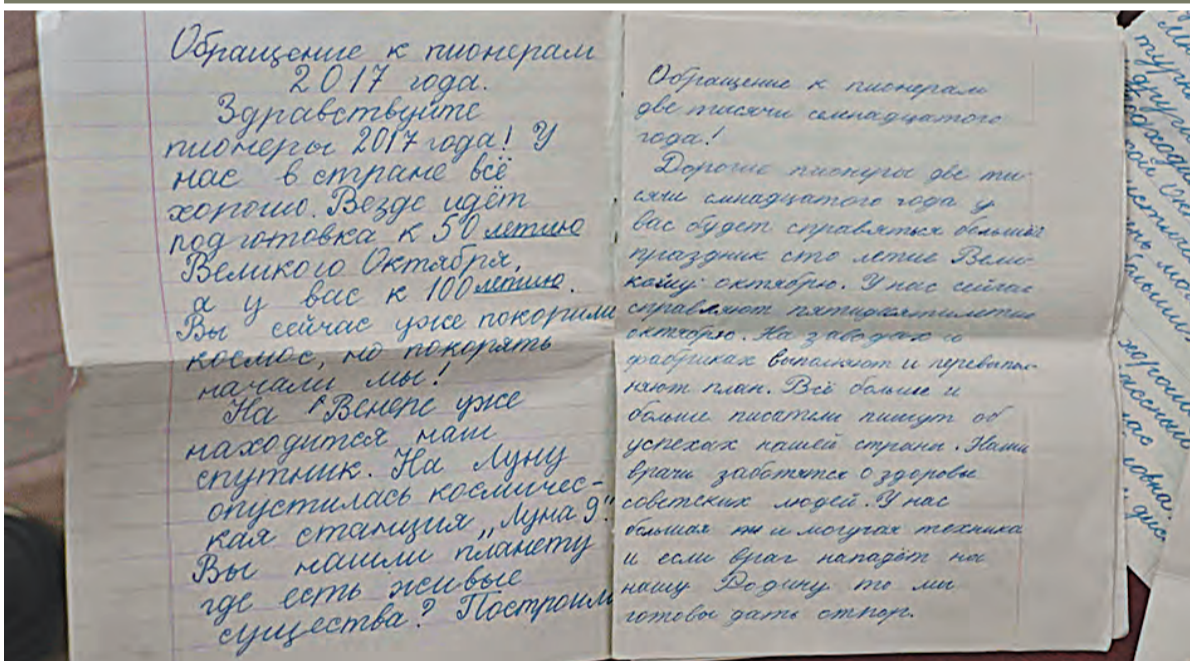 Обращение к пионерам
2017 года.
Здравствуйте
пионеры 2017 года! У
нас в стране всё
хорошо. Везде идёт
подготовка к 50 летию
Великого Октября,
а у вас к 100 летию.
Вы сейчас уже покорили
космос, но покорять
начали мы!
На Венере уже
находится наш
спутник. На Луну
опустилась космичес-
кая станция „Луна 9".
Вы нашли планету
где есть живые
существа? Построили
Обращение к пионерам
две тисячи семнадцатого
года!
Дорогие пионеры две ти-
сячи семнадцатого года у
вас будет справляться большой
праздник сто летие Вели-
кому октябрю. У нас сейчас
справляют пятидесятилетие
октябрю. На заводах и
фабриках выполняют и перевыпол-
няют план. Всё больше и
больше писатели пишут об
успехах нашей страны. Наши
врачи заботятся о здоровье
советских людей. У нас
большая и могучая техника
и если враг нападёт на
нашу Родину то мы
готовы дать отпор.